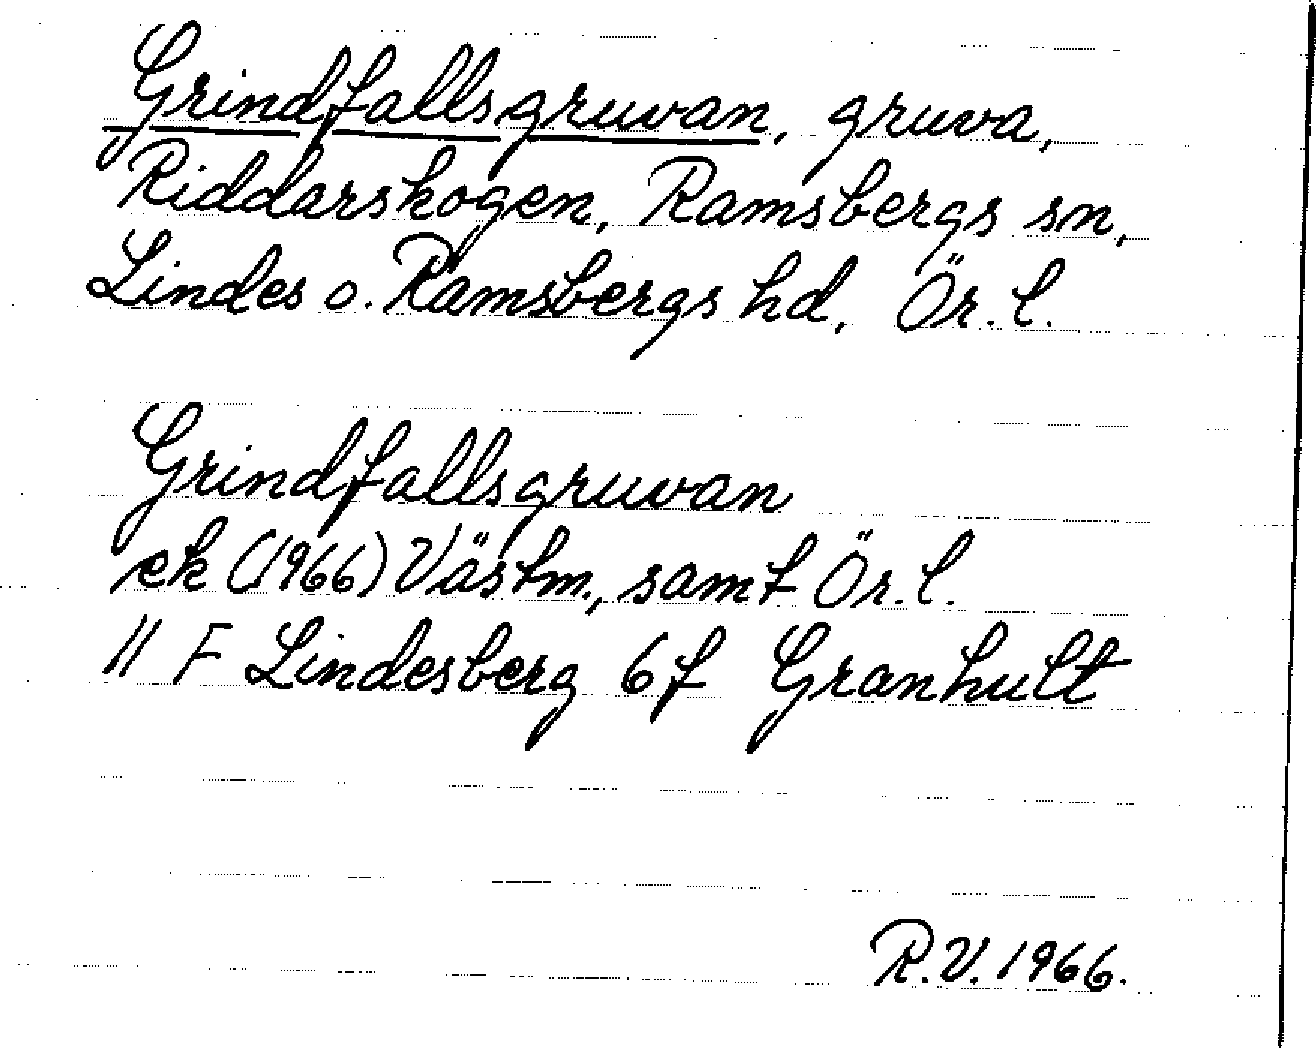 Grindfallsgruvan, gruva,
Riddarskogen, Ramsbergs sn,
Lindes o. Ramsbergs hd, Ör. l.
Grindfallsgruvan
ek (1966) Västm., samt Ör. l.
11 F Lindesberg 6f Granhult
R.V. 1966.